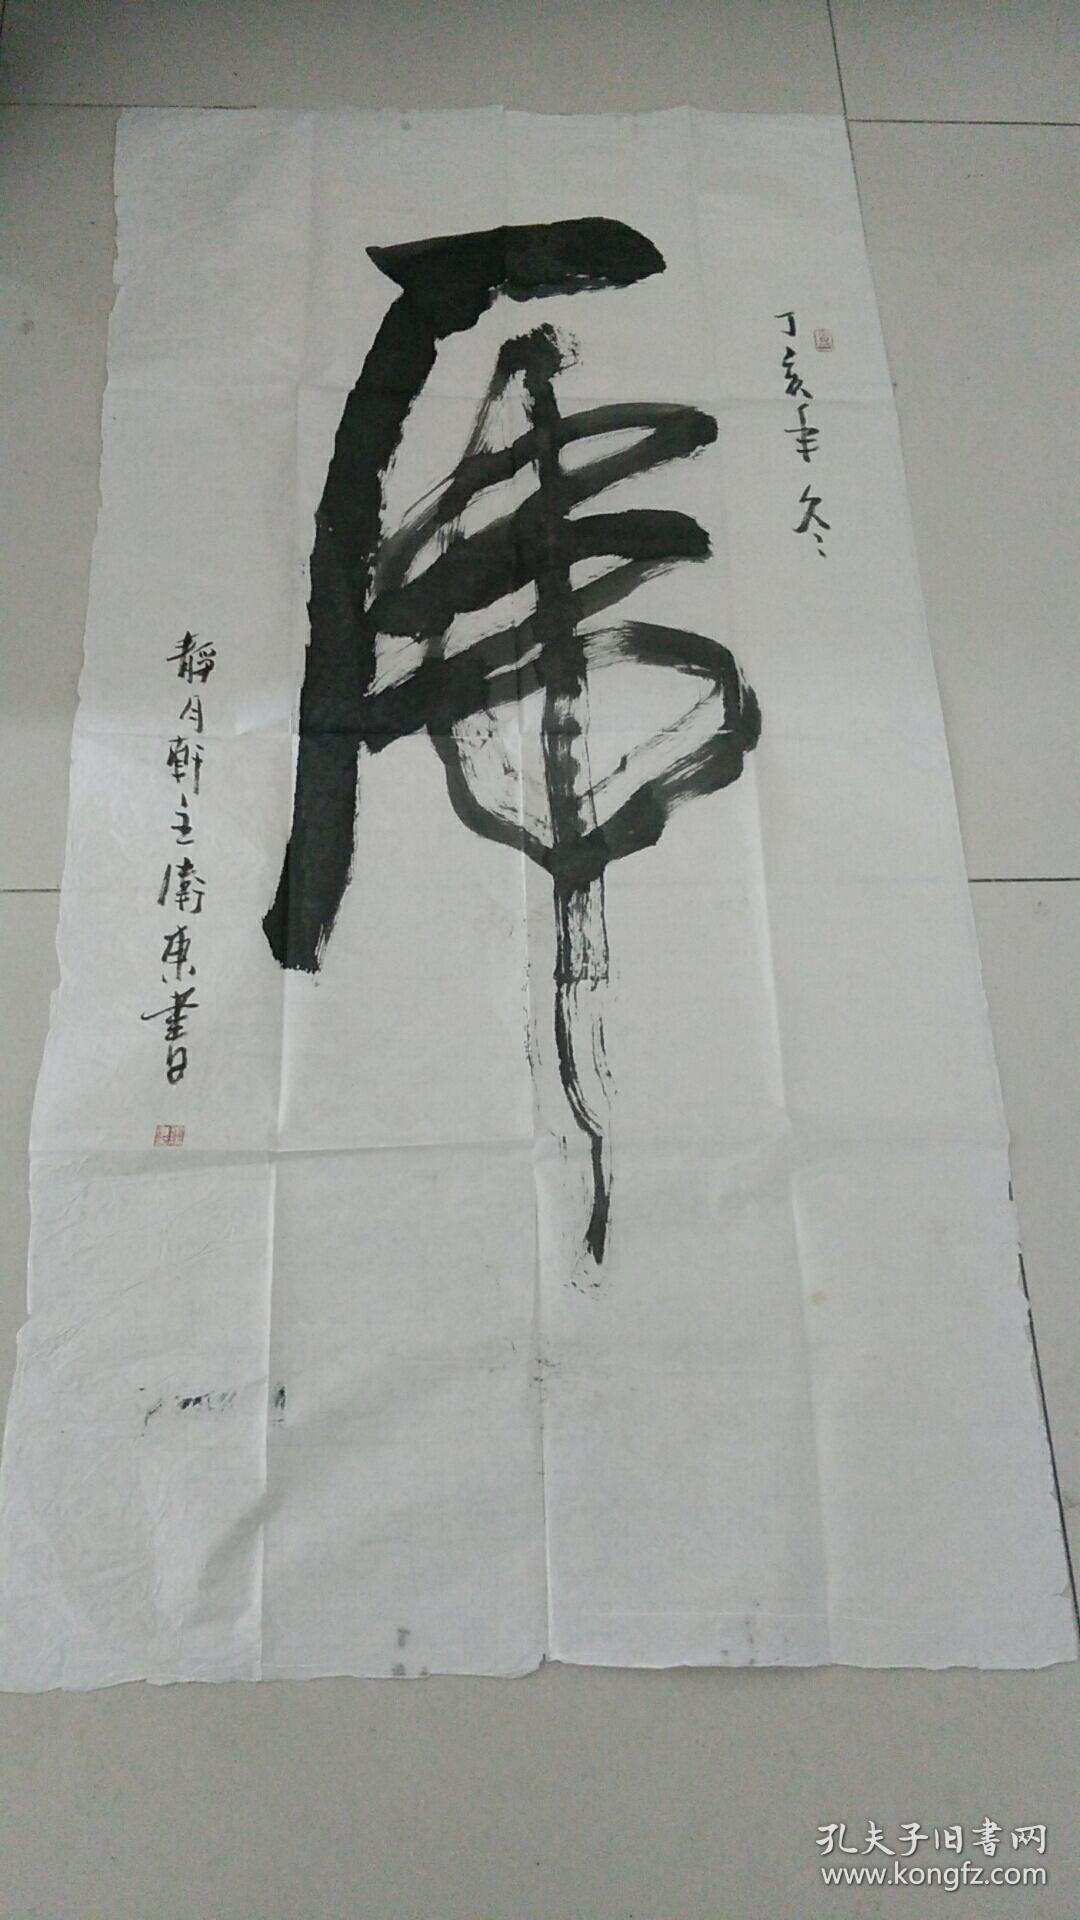 丁亥年冬
虎
静月軒主衛東書
孔夫子旧書网
www.kongfz.com